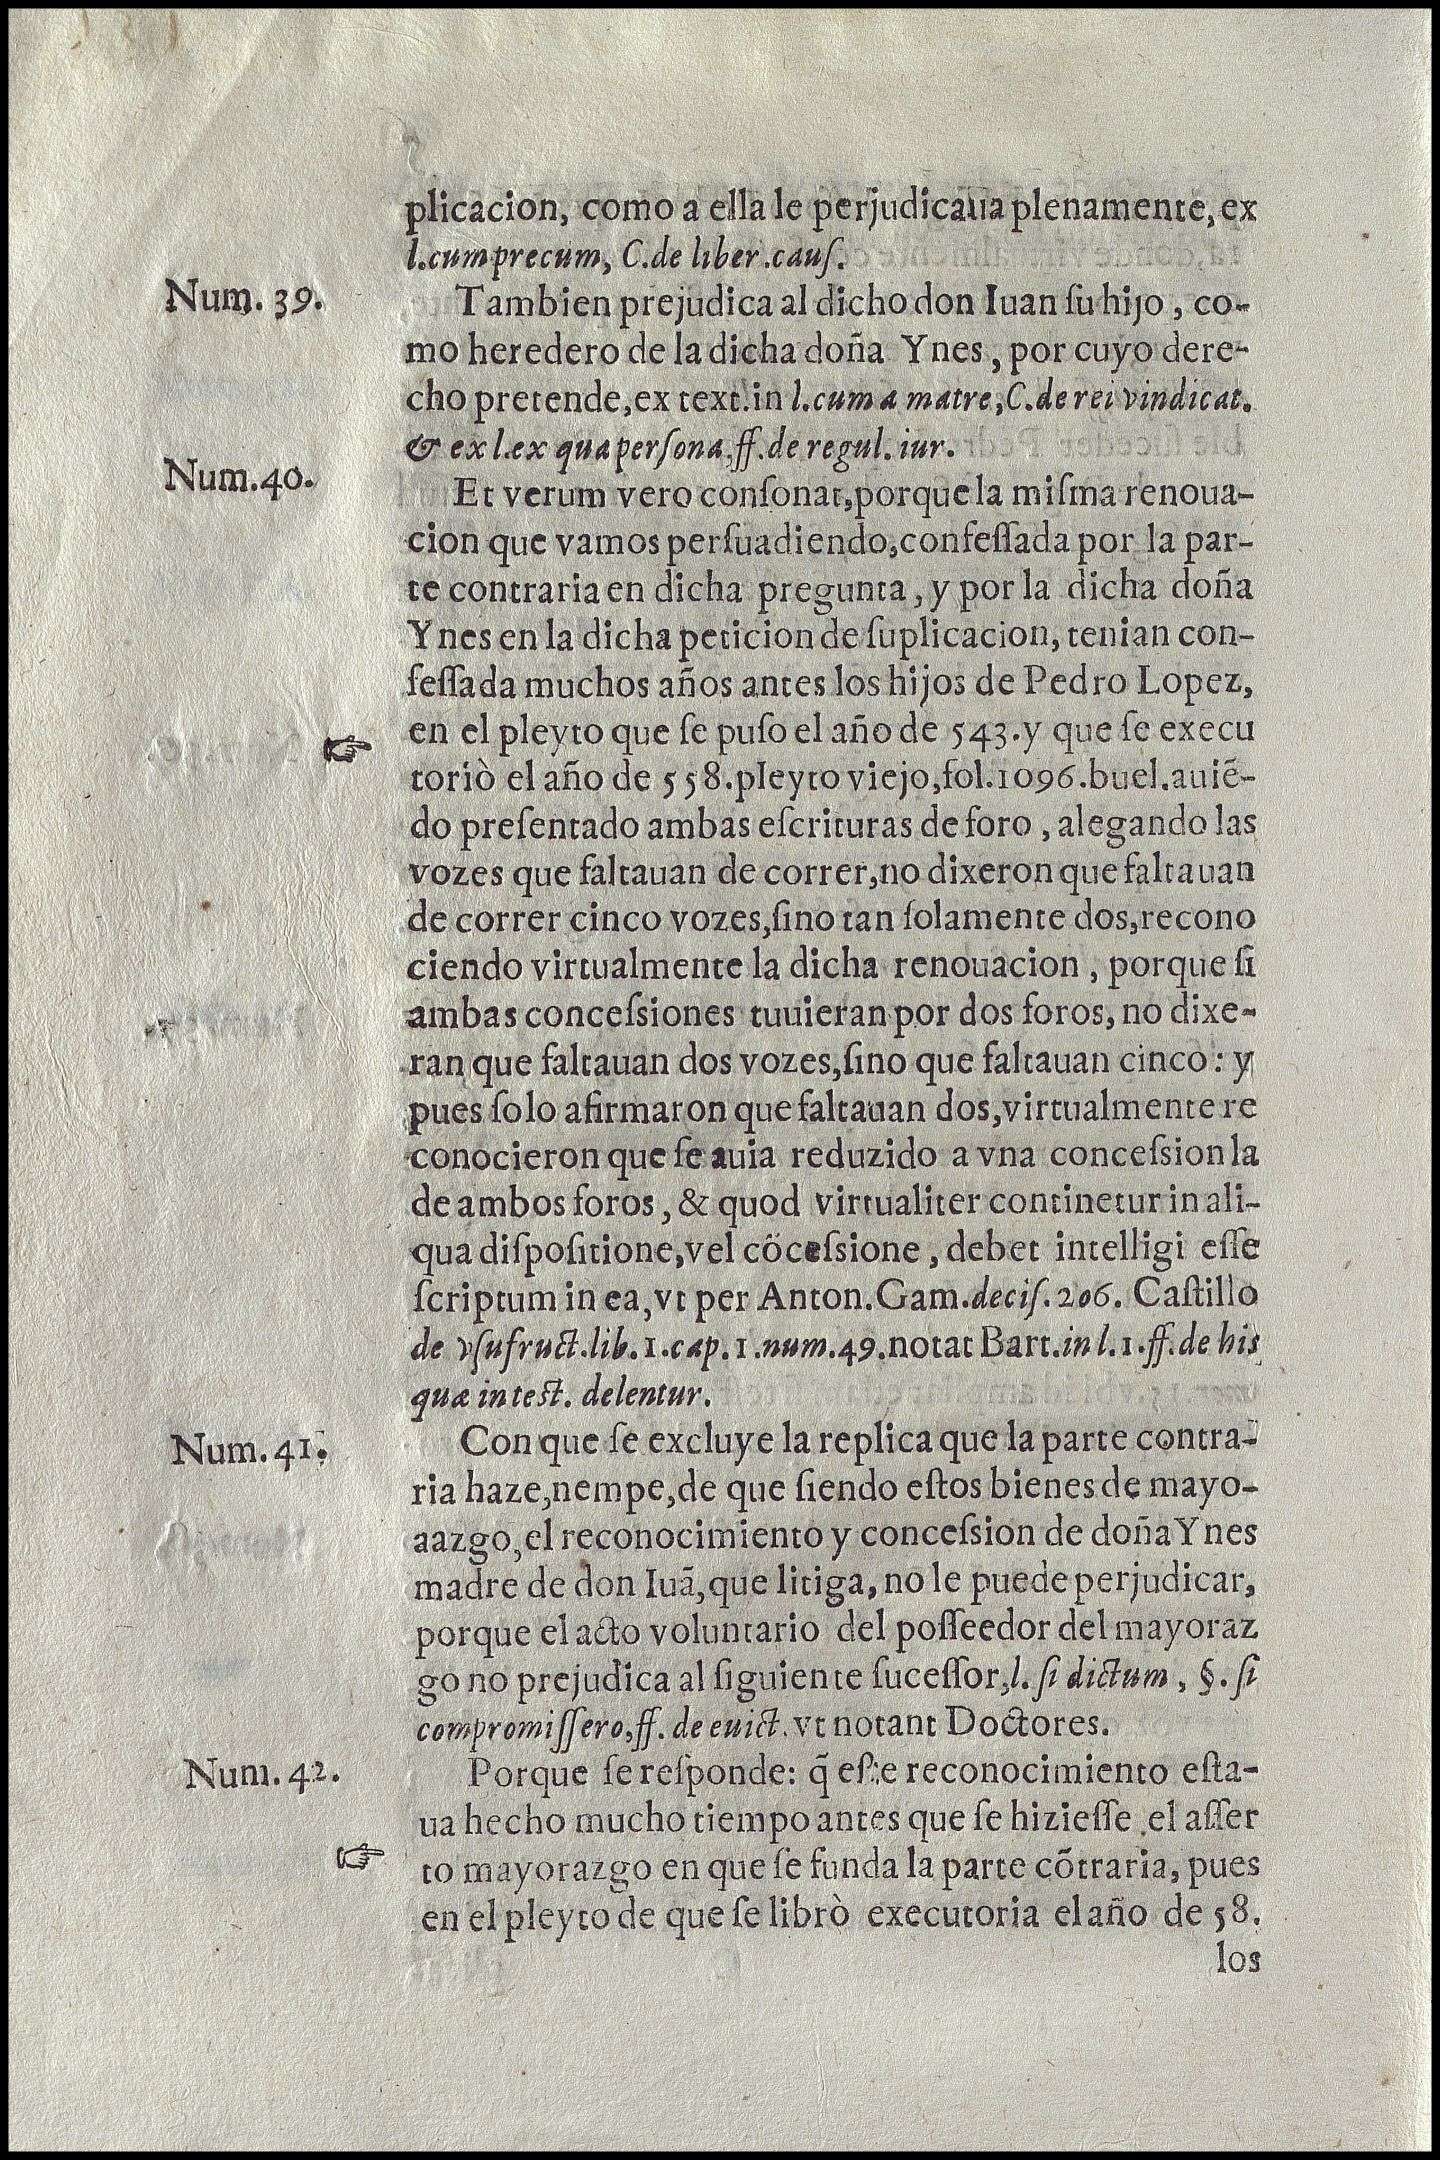 plicacion, como a ella le perjudicaua plenamente, ex
l.cum precum, C.de liber.cauſ.
Num. 39.
Tambien prejudica al dicho don Iuan ſu hijo, co-
mo heredero de la dicha doña Ynes, por cuyo dere-
cho pretende, ex text.in l.cum a matre, C.de rei vindicat.
& ex l.ex qua perſona, ff.de regul. iur.
Num.40.
Et verum vero conſonat, porque la miſma renoua-
cion que vamos perſuadiendo, confeſſada por la par-
te contraria en dicha pregunta, y por la dicha doña
Ynes en la dicha peticion de ſuplicacion, tenian con-
feſſada muchos años antes los hijos de Pedro Lopez,
☞ en el pleyto que ſe puſo el año de 543. y que ſe execu
toriò el año de 558. pleyto viejo, fol.1096. buel. auiẽ-
do preſentado ambas eſcrituras de foro, alegando las
vozes que faltauan de correr, no dixeron que faltauan
de correr cinco vozes, ſino tan ſolamente dos, recono
ciendo virtualmente la dicha renouacion, porque ſi
ambas conceſsiones tuuieran por dos foros, no dixe-
ran que faltauan dos vozes, ſino que faltauan cinco: y
pues ſolo afirmaron que faltauan dos, virtualmente re
conocieron que ſe auia reduzido a vna conceſsion la
de ambos foros, & quod virtualiter continetur in ali-
qua diſpoſitione, vel cõceſsione, debet intelligi eſſe
ſcriptum in ea, vt per Anton. Gam. deciſ. 206. Caſtillo
de vſufruct. lib. 1. cap. 1. num. 49. notat Bart. in l. 1. ff. de his
quæ in teſt. delentur.
Num. 41.
Con que ſe excluye la replica que la parte contra-
ria haze, nempe, de que ſiendo eſtos bienes de mayo-
aazgo, el reconocimiento y conceſsion de doña Ynes
madre de don Iuã, que litiga, no le puede perjudicar,
porque el acto voluntario del poſſeedor del mayoraz
go no prejudica al ſiguiente ſuceſſor, l. ſi dictum, §. ſi
compromiſſero, ff. de euict. vt notant Doctores.
Num. 42.
Porque ſe reſponde: q̃ eſte reconocimiento eſta-
ua hecho mucho tiempo antes que ſe hizieſſe el aſſer
☞ to mayorazgo en que ſe funda la parte cõtraria, pues
en el pleyto de que ſe librò executoria el año de 58.
los